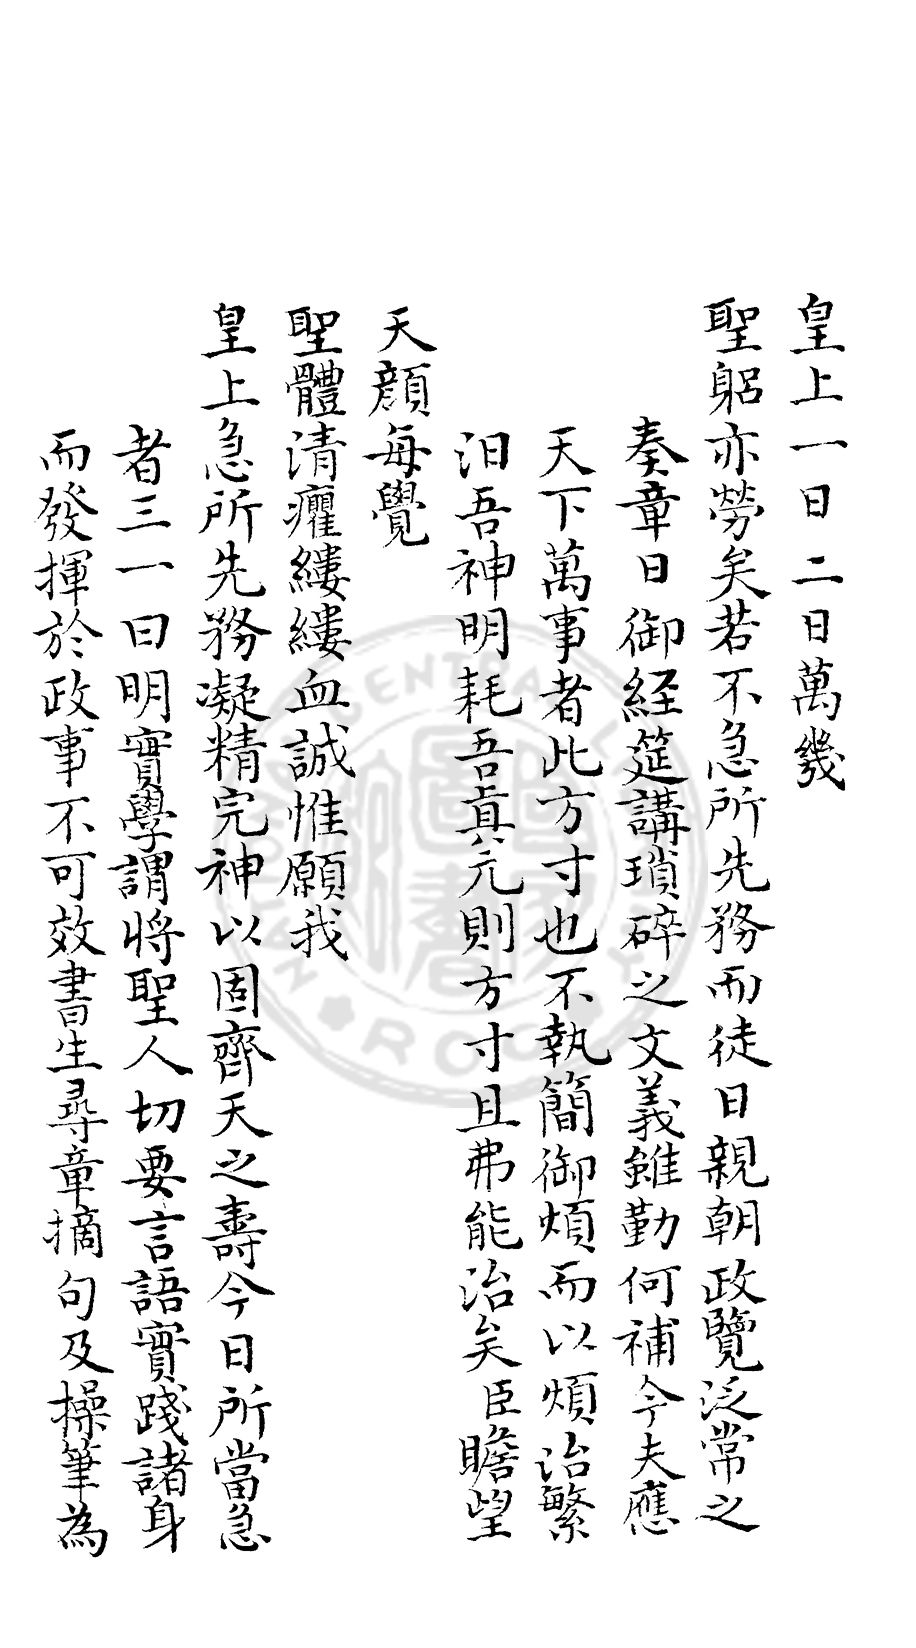 皇上一日二日萬幾
聖躬亦勞矣若不急所先務而徒日親朝政覽泛常之
奏章日御經筵講瑣碎之文義雖勤何補今夫應
天下萬事者此方寸也不執簡御煩而以煩治繁
汨吾神明耗吾真元則方寸且弗能治矣臣瞻望
天顔每覺
聖體清癯縷縷血誠惟願我
皇上急所先務凝精完神以固齊天之壽今日所當急
者三一曰明實學謂將聖人切要言語實踐諸身
而發揮於政事不可效書生尋章摘句及操筆為
NATIONAL CENTRAL LIBRARY R.O.C.